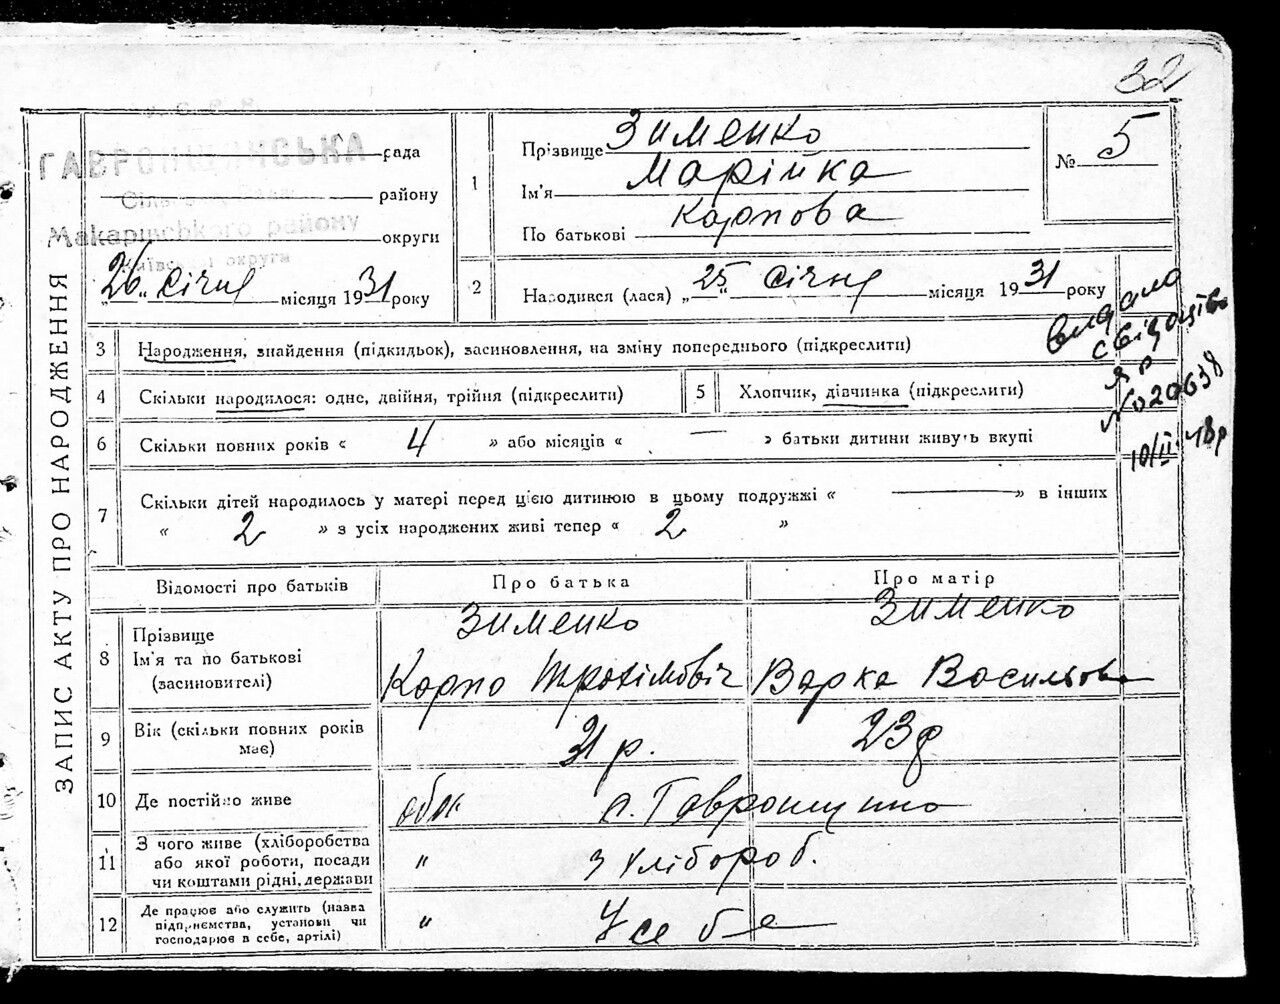 32
У. С. Р. Р.
ГАВРОНЩИНСЬКА рада
Сільська Рада району
Макарівського району округи
Київської округи
„26“ Січня місяця 1931 року
ЗАПИС АКТУ ПРО НАРОДЖЕННЯ
1
Прізвище Зименко
Ім'я Марійка
По батькові Карпова
№ 5
2
Народився (лася) „25“ Січня місяця 1931 року
3 Народження, знайдення (підкидьок), засиновлення, на зміну попереднього (підкреслити)
4 Скільки народилося: одне, двійня, трійня (підкреслити)
5 Хлопчик, дівчинка (підкреслити)
6 Скільки повних років « 4 » або місяців « — » батьки дитини живуть вкупі
7 Скільки дітей народилось у матері перед цією дитиною в цьому подружжі « — » в інших
« 2 » з усіх народжених живі тепер « 2 »
видано
свідоцтво
No 20638
10/II-48р
Відомості про батьків Про батька Про матір
8 Прізвище
Ім'я та по батькові
(засиновителі)
Зименко
Карпо Трохімовіч
Зименко
Варка Васильова
9 Вік (скільки повних років
має)
21 р. 23 р
10 Де постійно живе с. Гавронщина
11 З чого живе (хліборобства
або якої роботи, посади
чи коштами рідні, держави
" З хлібороб.
12 Де працює або служить (назва
підприємства, установи чи
господарює в себе, артілі)
" У себе